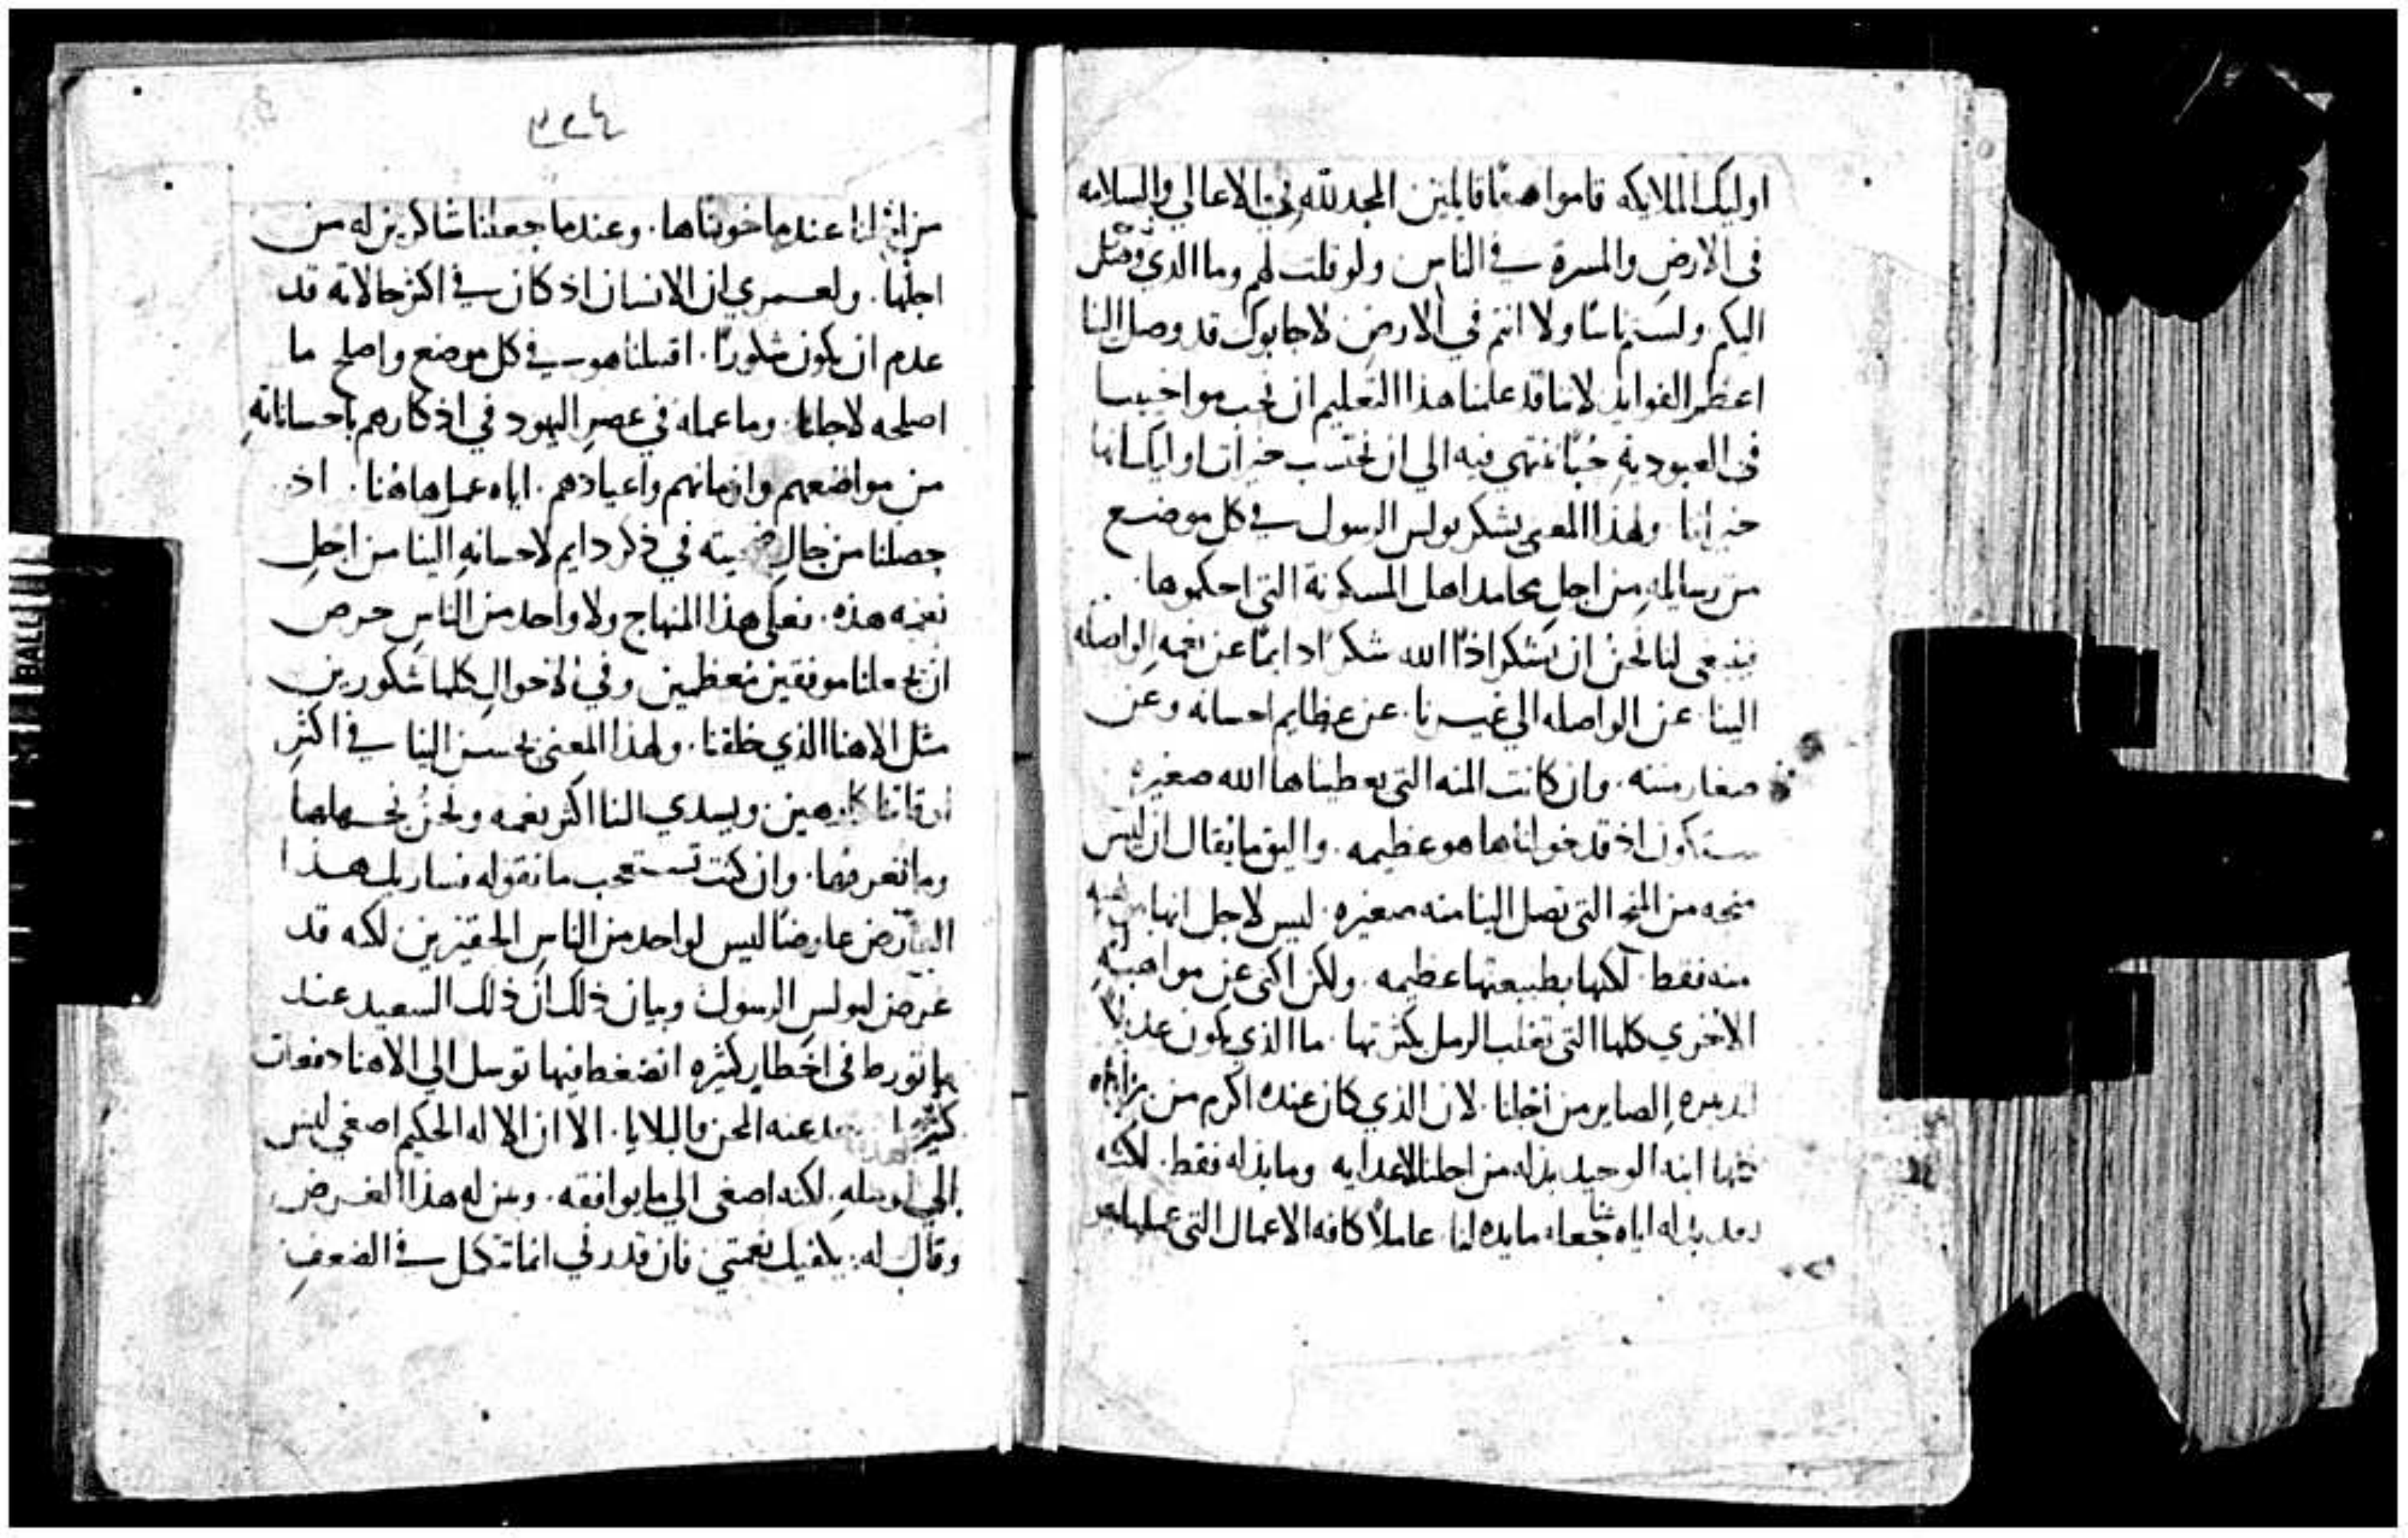 اوليك الملايكه قاموا صفًا قايلين المجد لله في الاعالي والسلامه
في الارض والمسرة في الناس ولو قلت لهم وما الذي وصل
اليكم ولستم ناسًا ولا انتم في الارض لاجابوك قد وصل الينا
اعظم الفوايد لاننا قد علمنا هذا التعليم ان نحب مواخيينا
في العبودية حُبًا ننتهي فيه الي ان نحتسب خيرات اوليك انها
خيراتنا ولهذا المعني يشكر بولس الرسول في كل موضع
من رسايله من اجل محامد اهل المسكونة التي احكموها
فينبغي لنا نحن ان نشكر اذًا الله شكرًا دايمًا عن نعمه الواصله
الينا عن الواصله الي غيرنا. عن عظايم احسانه وعن
صغار مننه. وان كانت المنه التي يعطيناها الله صغيره
ستكون اذ قد خولناها هو عظيمه. واليق ما يقال ان ليس
منحه من المنح التي تصل الينا منه صغيره. ليس لاجل انها
منه فقط. لكنها بطبيعتها عظيمه. ولكن اكني عن مواهبه
الاخري كلها التي تغلب الرمل بكثرتها. ما الذي يكون عديلًا
الصاير من اجلنا. لان الذي كان عنده اكرم من
ابنه الوحيد بذله من اجلنا لاعدايه وما بذله فقط. لكنه
بعد بذله اياه جعله مايده لنا. عاملًا كافه الاعمال التي عملها هو
٣٢٤
من اجلنا عندما خولناها. وعندما جعلنا شاكرين له من
اجلها. ولعمري ان الانسان اذ كان في اكثر حالاته قد
عدم ان يكون شكورًا. اقتبلنا هو في كل موضع واصلح ما
اصلحه لاجلنا. وما عمله في عصر اليهود في اذكارهم باحساناته
من مواضعهم وازمانهم واعيادهم. اياه عمل هاهُنا. اذ
جعلنا من حال في ذكر دايم لاحسانهِ الينا من اجل
نعمه هذه. فعلي هذا المنهاج ولا واحد من الناس حرص
ان يجعلنا موفقين مُعظمين وفي الاحوال كلها شكورين
مثل الاهنا الذي خلقنا. ولهذا المعني يحسن الينا في اكثر
اوقاتنا كارهين ويسدي الينا اكثر نعمه ونحنُ نجهلها
وما نعرفها. وان كنت تستعجب ما نقوله فساريك هذا
العارض عارضًا ليس لواحد من الناس الحقيرين لكنه قد
عرض لبولس الرسول وبيان ذلك ان ذلك السعيد عند
ما تورط في اخطارٍ كثيره انضغط فيها توسل الي الاهنا دفعات
كثيرة عنه المحن والبلايا. الا ان الاله الحكيم اصغي ليس
الي توسله. لكنه اصغي الي ما يوافقه. وبين له هذا الغرض
وقال له: يكفيك نعمتي فان قدرتي انما تتكل في الضعف